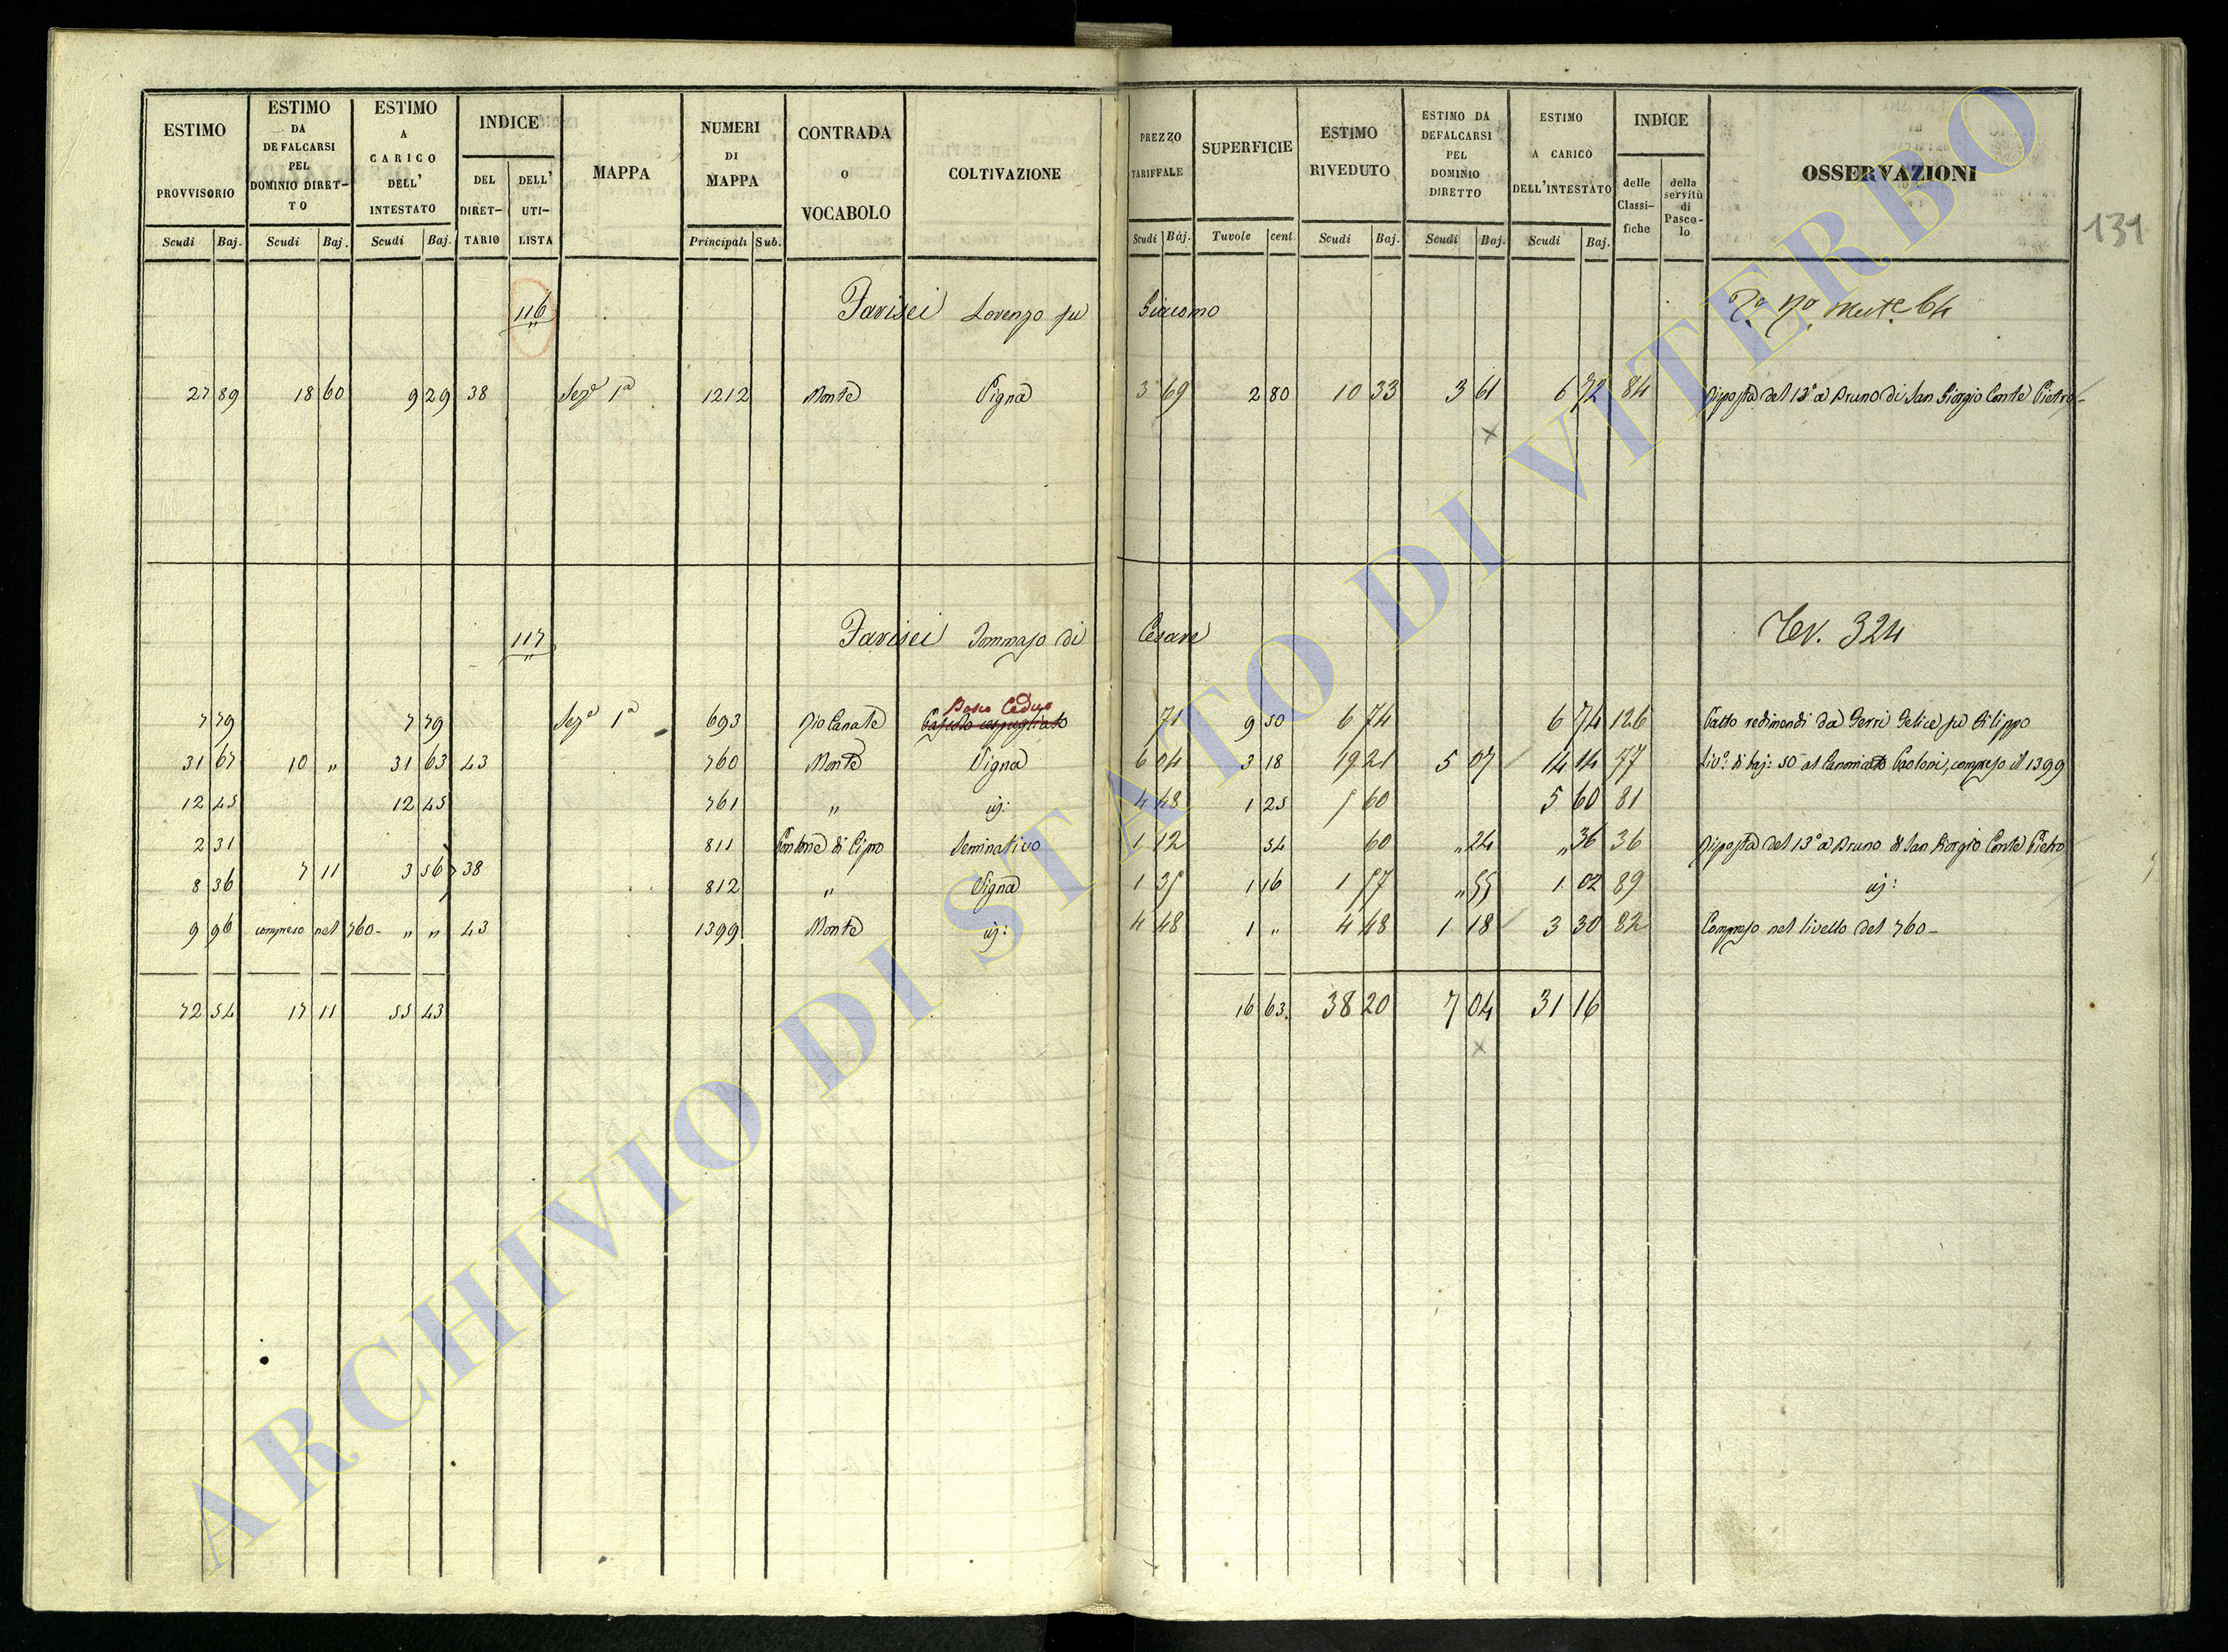 ESTIMO PROVVISORIO Scudi Baj.
ESTIMO DA DEFALCARSI PEL DOMINIO DIRET-TO Scudi Baj.
ESTIMO A CARICO DELL' INTESTATO Scudi Baj.
INDICE DEL DIRET-TARIO DELL' UTI-LISTA
MAPPA
NUMERI DI MAPPA Principali Sub.
CONTRADA o VOCABOLO
COLTIVAZIONE
PREZZO TARIFFALE Scudi Baj.
SUPERFICIE Tuvole cent
ESTIMO RIVEDUTO Scudi Baj.
ESTIMO DA DEFALCARSI PEL DOMINIO DIRETTO Scudi Baj.
ESTIMO A CARICO DELL'INTESTATO Scudi Baj.
INDICE delle Classi-fiche della servitù di Pasco-lo
OSSERVAZIONI
131
116 Farisei Lorenzo fu Giacomo
27 89 18 60 9 29 38 Sezᵉ 1ª 1212 Monte Vigna 3 69 2 80 10 33 3 61 6 72 84 Risposta del 13° a Bruno di San Giorgio Conte Pietro
117 Farisei Tommaso di Cesare Rev. 324
Bosco Ceduo
7 79 7 79 Sezᵉ 1ª 693 Rio Canale Pascolo cespugliato 71 9 50 6 74 6 74 126 Patto redimendi da Serri Felice fu Filippo
31 67 10 " 31 63 43 760 Monte Vigna 6 04 3 18 19 21 5 07 14 14 77 Livº: di baj: 50 al Canonicato Paoloni, compreso il 1399
12 45 12 45 761 " id: 4 48 1 25 5 60 5 60 81
2 31 811 Cantone di Cipro Seminativo 1 12 54 60 " 24 " 36 36 Risposta del 13° a Bruno di San Giorgio Conte Pietro
7 11 3 56 38
8 36 812 " Vigna 1 35 1 16 1 57 " 55 1 02 89 id:
9 96 compreso nel 760 - " " 43 1399 Monte id: 4 48 1 " 4 48 1 18 3 30 82 Compreso nel livello del 760 -
72 54 17 11 55 43 16 63 38 20 7 04 31 16
ARCHIVIO DI STATO DI VITERBO